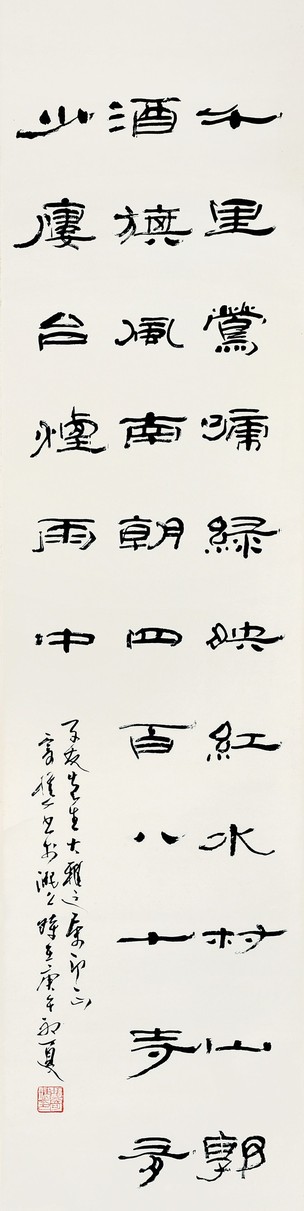 千里鶯啼綠映紅水村山郭
酒旗風南朝四百八十寺多
少廔台煙雨中
友先生大雅之屬即正
樵書於滬上時在庚午初夏